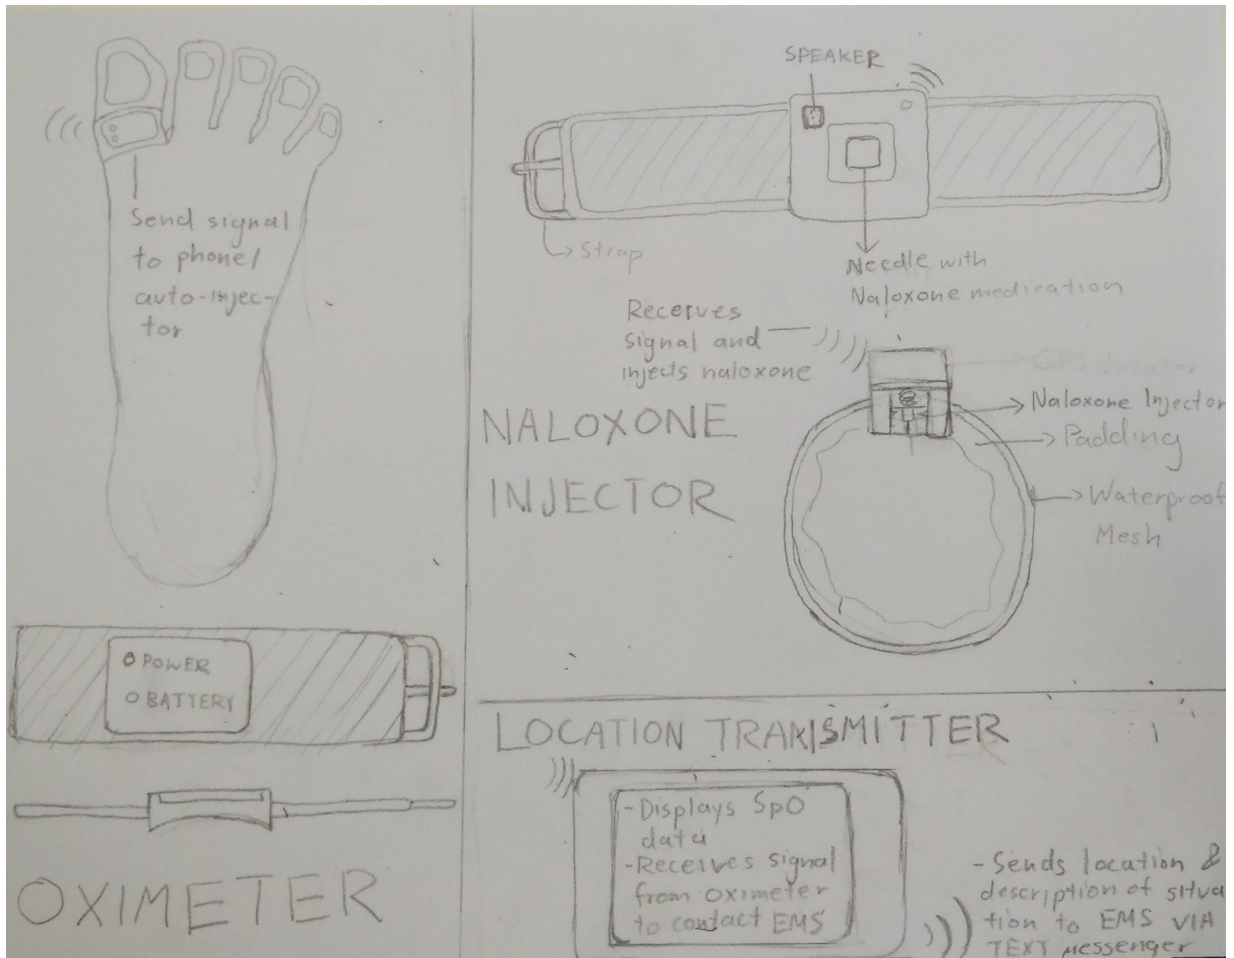 Send signal
to phone/
auto-injec-
tor
POWER
BATTERY
OXIMETER
SPEAKER
Strap
Needle with
Naloxone medication
Receives
signal and
injects naloxone
NALOXONE
INJECTOR
GPS
Naloxone Injector
Padding
Waterproof
Mesh
LOCATION TRANSMITTER
-Displays SpO
data
-Receives signal
from oximeter
to contact EMS
-Sends location &
description of situa
tion to EMS VIA
TEXT Messenger